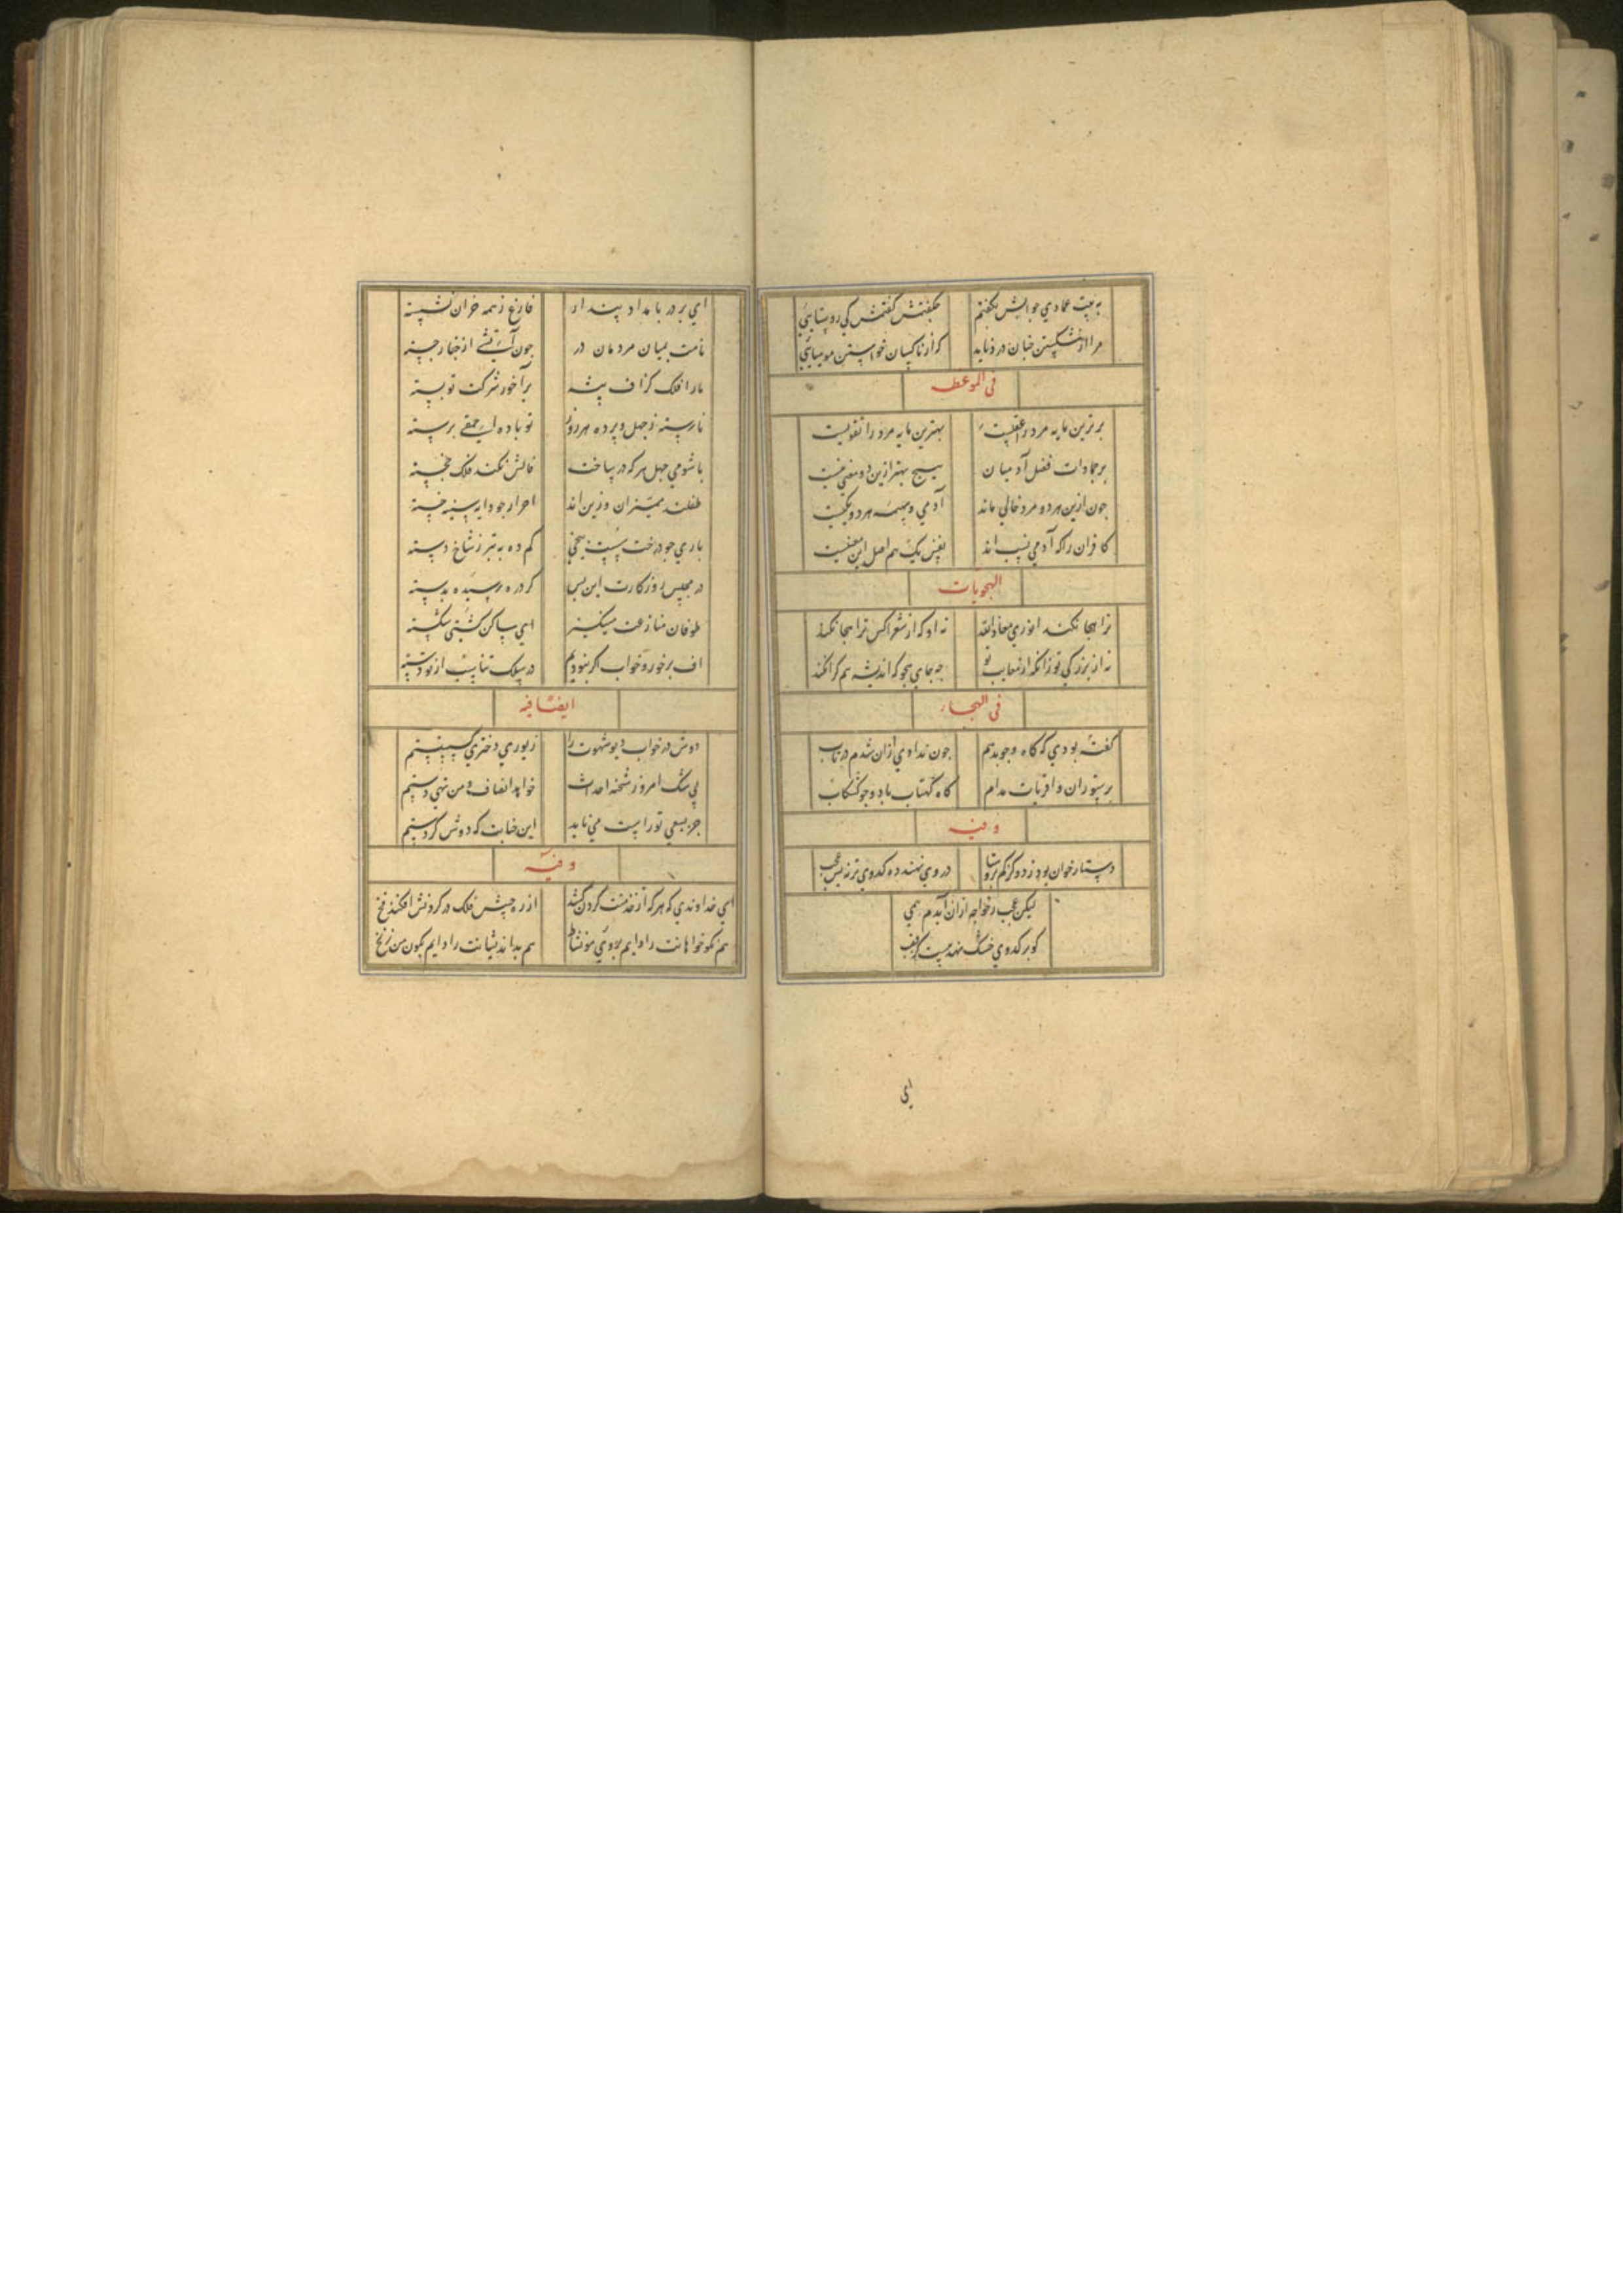 به بیت عمادی جوابش بگفتم چگفتمش گفتمش کی روستایی
مرا از شکستن جنان درد ناید که از ناکسان خواستن مومیایی
فی الموعظه
برترین مایه مرد را عقلست بهترین مایه مرد را تقویست
بر جمادات فضل آدمیان هیچ بهتر ازین دو معنی نیست
جون ازین هر دو مرد خالی ماند آدمی و بهیمه هر دو یکیست
کافران را که آدمی نسب اند
الهجویات
ترا هجا نکند انوری معاذالله نه او که از شعرا کس ترا هجا نکند
نه از بزرگی تو زانکه از معایب تو چه جای هجو که اندیشه هم کرا نکند
فی الهجا
گفته بودی که کاه و جو بدهم جون ندادی ازان شدم در تاب
بر ستوران و اقربات مدام کاه کهتاب باد و جو کشکاب
وفیه
دستار خوان بود ز دو گز کم بروستا در وی نهند ده کدوی تر نه بس عجب
لیکن عجب ز خواجه ازان آیدم همی
کو بر کدوی خشک نهد بیست گز قصب
ای
ای بر در بامداد پندار فارغ ز همه خران نشسته
نامت بمیان مردمان در جون آتشی از خیار جسته
ما را فلک گزاف پیشه بر آخور شرکت تو بسته
نارسته ز جهل و برده هر روز نوباده ابلهی برسته
با شومی جهل هر که در ساخت فالش نکند فلک خجسته
طفلند ممیزان و زین اند احرار جو دایه سینه خسته
باری جو درخت پست بیخی کم ده به تبر ز شاخ دسته
در مجلس روزگارت این بس
طوفان منازعت میانگیز ای ساکن کشتی شکسته
اف بر خور و خواب اگر نبودیم در سلک تناسب از تو رسته
ایضا فیه
دوش در خواب دیو شهوت را زیوری دختری
بی شک امروز شحنه احداث خواهد انصاف و من تهی دستم
جز بسعی تو راست می ناید این جنابت که دوش کردستم
وفیه
ای خداوندی که هر که از خدمتت گردن کشد از ره جبش فلک در گردنش افکند فخ
هم نکو خواهانت را دایم بروی مو نشاط هم بداندیشانت را دایم بکون من زنخ